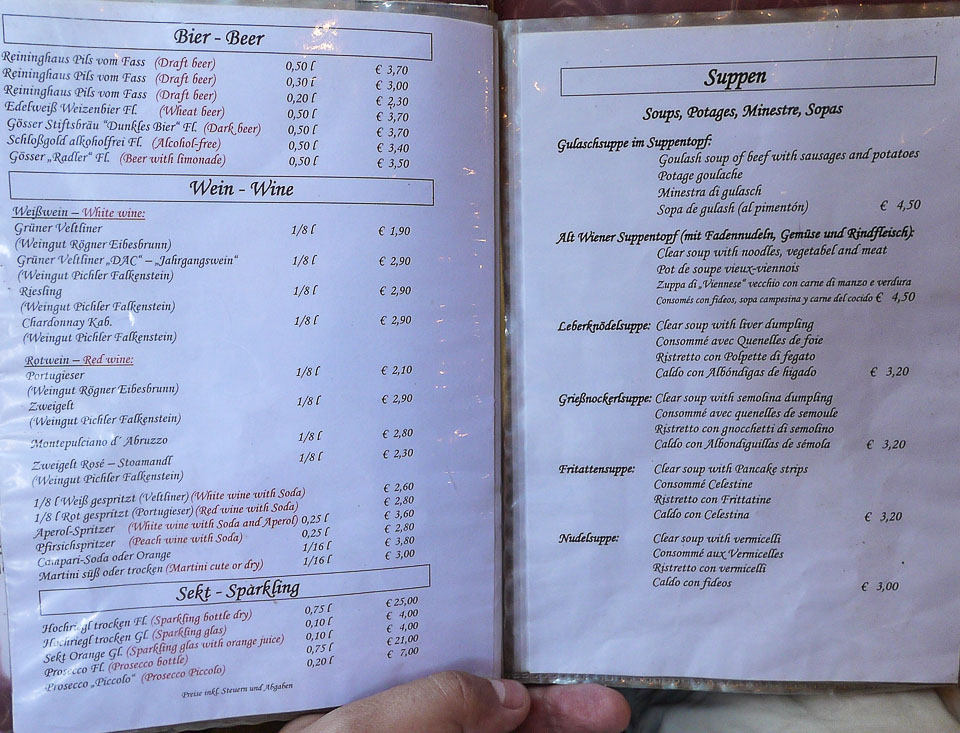 Bier - Beer
Reininghaus Pils vom Fass (Draft beer) 0,50 l € 3,70
Reininghaus Pils vom Fass (Draft beer) 0,30 l € 3,00
Reininghaus Pils vom Fass (Draft beer) 0,20 l € 2,30
Edelweiß Weizenbier Fl. (Wheat beer) 0,50 l € 3,70
Gösser Stiftsbräu "Dunkles Bier" Fl. (Dark beer) 0,50 l € 3,70
Schloßgold alkoholfrei Fl. (Alcohol-free) 0,50 l € 3,40
Gösser „Radler" Fl. (Beer with limonade) 0,50 l € 3,50
Wein - Wine
Weißwein – White wine:
Grüner Veltliner 1/8 l € 1,90
(Weingut Rögner Eibesbrunn)
Grüner Veltliner „DAC" – „Jahrgangswein" 1/8 l € 2,90
(Weingut Pichler Falkenstein)
Riesling 1/8 l € 2,90
(Weingut Pichler Falkenstein)
Chardonnay Kab. 1/8 l € 2,90
(Weingut Pichler Falkenstein)
Rotwein – Red wine:
Portugieser 1/8 l € 2,10
(Weingut Rögner Eibesbrunn)
Zweigelt 1/8 l € 2,90
(Weingut Pichler Falkenstein)
Montepulciano d´ Abruzzo 1/8 l € 2,80
Zweigelt Rosé – Stoamandl 1/8 l € 2,30
(Weingut Pichler Falkenstein)
1/8 l Weiß gespritzt (Veltliner) (White wine with Soda) € 2,60
1/8 l Rot gespritzt (Portugieser) (Red wine with Soda) € 2,80
Aperol-Spritzer (White wine with Soda and Aperol) 0,25 l € 3,60
Pfirsichspritzer (Peach wine with Soda) 0,25 l € 2,80
Campari-Soda oder Orange 1/16 l € 3,80
Martini süß oder trocken (Martini cute or dry) 1/16 l € 3,00
Sekt - Sparkling
Hochriegl trocken Fl. (Sparkling bottle dry) 0,75 l € 25,00
Hochriegl trocken Gl. (Sparkling glas) 0,10 l € 4,00
Sekt Orange Gl. (Sparkling glas with orange juice) 0,10 l € 4,00
Prosecco Fl. (Prosecco bottle) 0,75 l € 21,00
Prosecco „Piccolo" (Prosecco Piccolo) 0,20 l € 7,00
Preise inkl. Steuern und Abgaben
Suppen
Soups, Potages, Minestre, Sopas
Gulaschsuppe im Suppentopf:
Goulash soup of beef with sausages and potatoes
Potage goulache
Minestra di gulasch
Sopa de gulash (al pimentón) € 4,50
Alt Wiener Suppentopf (mit Fadennudeln, Gemüse und Rindfleisch):
Clear soup with noodles, vegetabel and meat
Pot de soupe vieux-viennois
Zuppa di „Viennese" vecchio con carne di manzo e verdura
Consomés con fideos, sopa campesina y carne del cocido € 4,50
Leberknödelsuppe: Clear soup with liver dumpling
Consommé avec Quenelles de foie
Ristretto con Polpette di fegato
Caldo con Albóndigas de hígado € 3,20
Grießnockerlsuppe: Clear soup with semolina dumpling
Consommé avec quenelles de semoule
Ristretto con gnocchetti di semolino
Caldo con Albondiguillas de sémola € 3,20
Fritattensuppe: Clear soup with Pancake strips
Consommé Celestine
Ristretto con Frittatine
Caldo con Celestina € 3,20
Nudelsuppe: Clear soup with vermicelli
Consommé aux Vermicelles
Ristretto con vermicelli
Caldo con fideos € 3,00